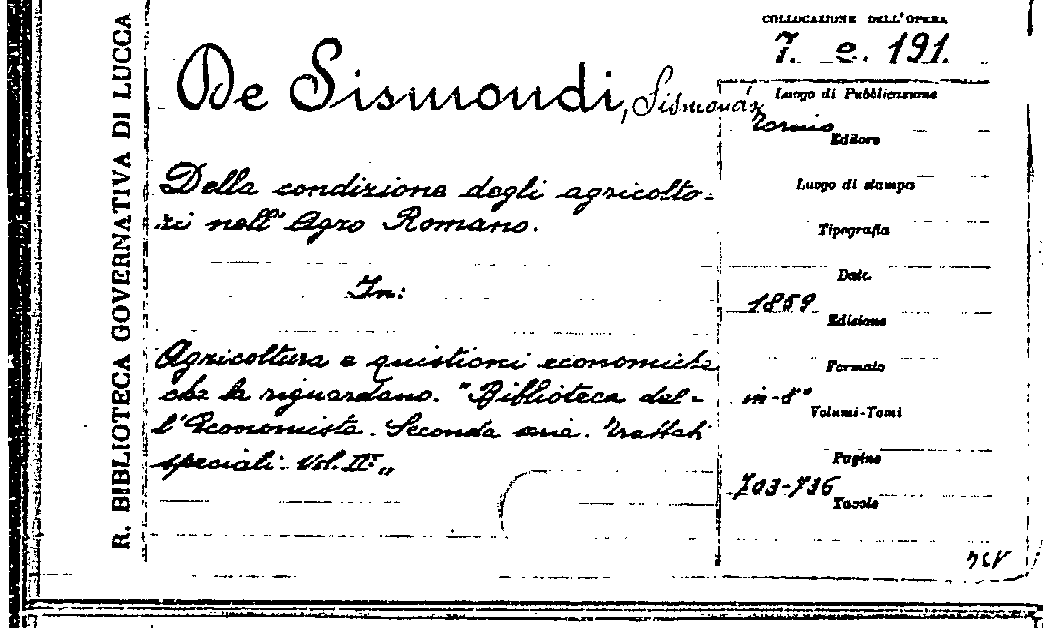 R. BIBLIOTECA GOVERNATIVA DI LUCCA
COLLOCAZIONE DELL'OPERA
7. e. 191.
De Sismondi, Sismondi
Della condizione degli agricolto-
ri nell'Agro Romano.
In:
Agricoltura e quistioni economiche
che la riguardano. "Biblioteca del-
l'Economista. Seconda serie. Trattati
speciali. Vol. II°„
Luogo di Pubblicazione
Torino
Editore
Luogo di stampa
Tipografia
Date
1859
Edizione
Formato
in-8°
Volumi-Tomi
Pagine
703-736
Tavole